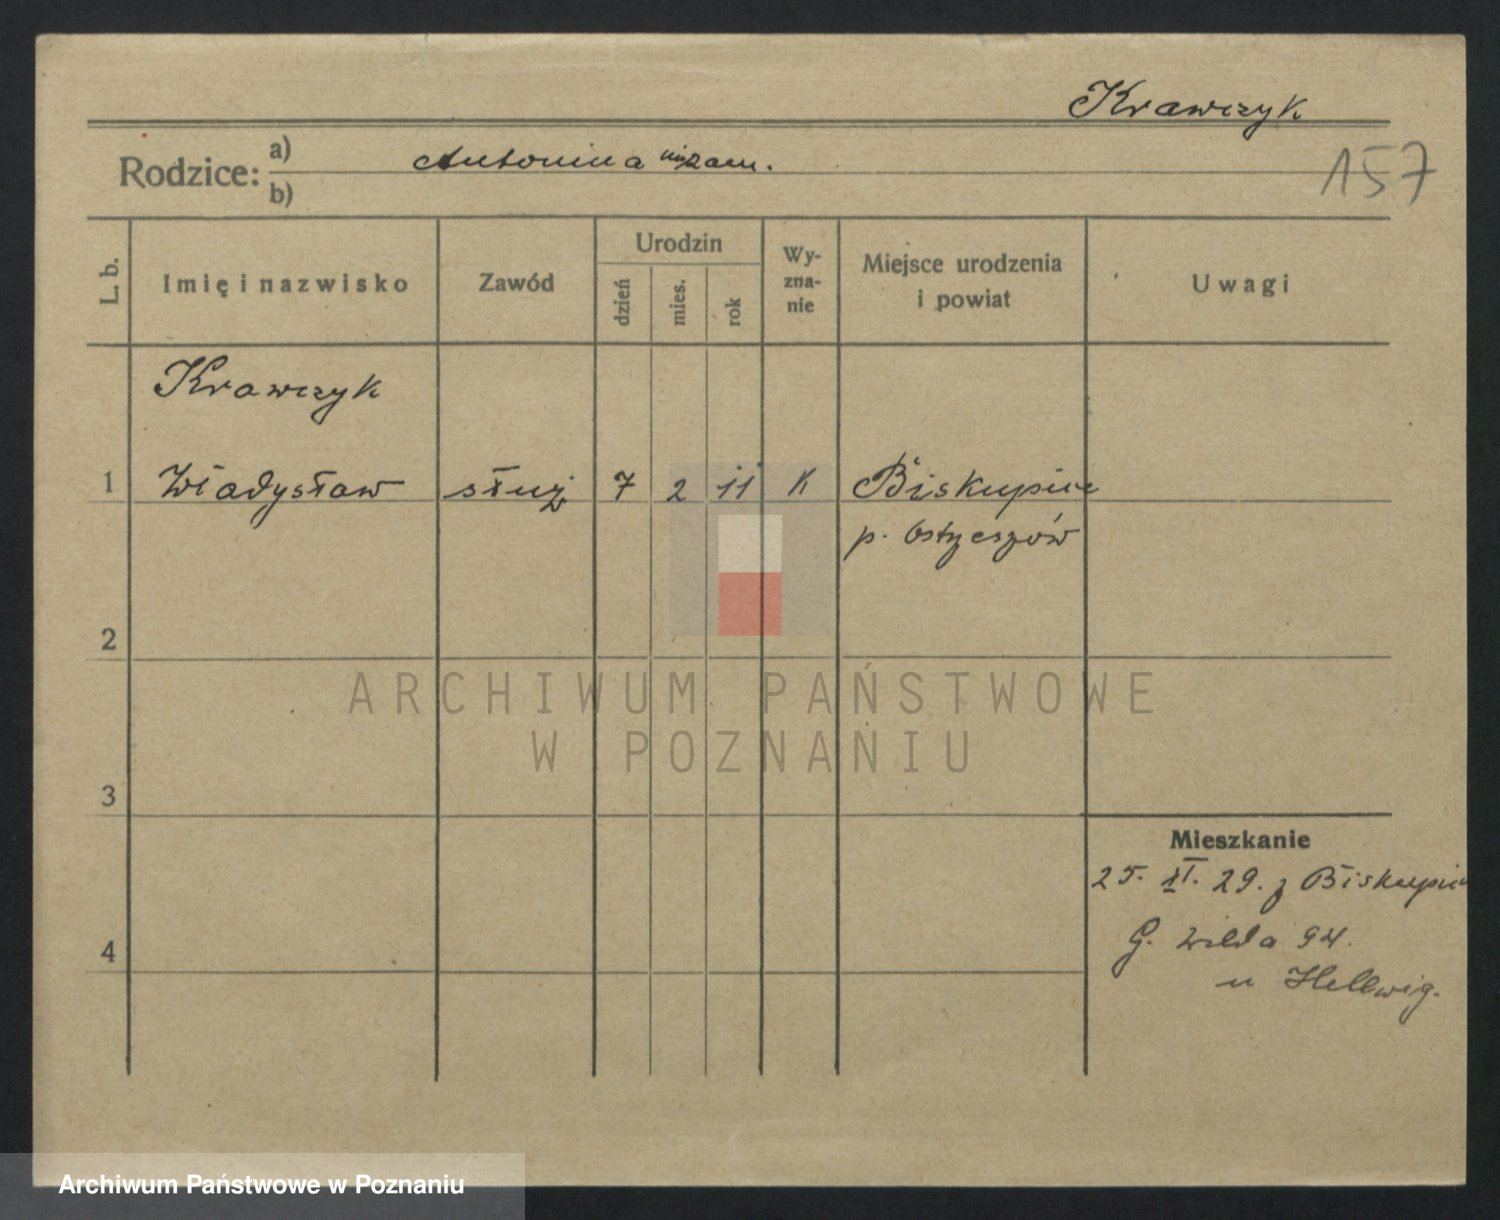 Krawczyk
Rodzice: a) Antonina niezam.
b)
157
L. b. Imię i nazwisko Zawód Urodzin dzień mies. rok Wy-zna-nie Miejsce urodzenia i powiat Uwagi
Krawczyk
1 Władysław służ 7 2 11 K Biskupice
p. Ostrzeszów
2
ARCHIWUM PAŃSTWOWE
W POZNANIU
3
Mieszkanie
25. XI. 29. z Biskupic
4 G. Wilda 94.
u Hellwig.
Archiwum Państwowe w Poznaniu